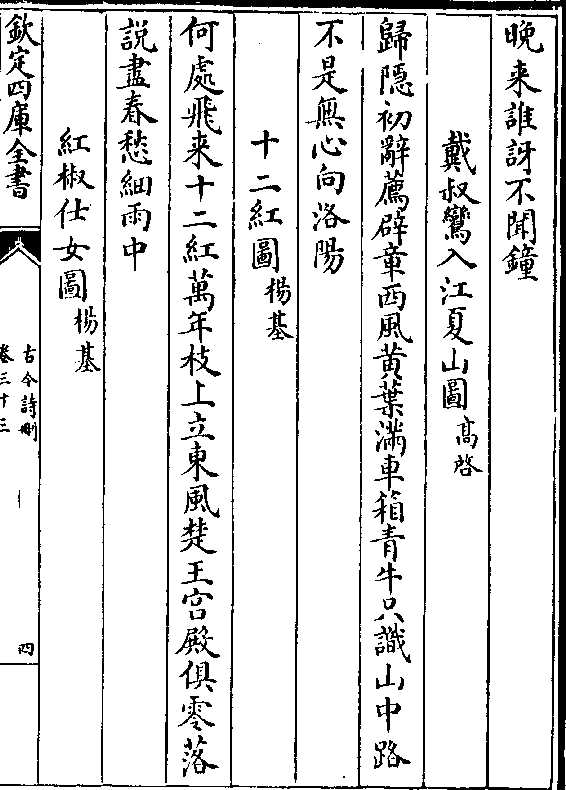 晚来誰訝不聞鐘
戴叔鸞入江夏山圖 髙啓
歸隠初辭薦辟章西風黄葉滿車箱青牛只識山中路
不是無心向洛陽
十二紅圖 楊基
何處飛来十二紅萬年枝上立東風楚王宫殿俱零落
説盡春愁細雨中
紅椒仕女圖 楊基
欽定四庫全書
古今詩刪
卷三十三
四